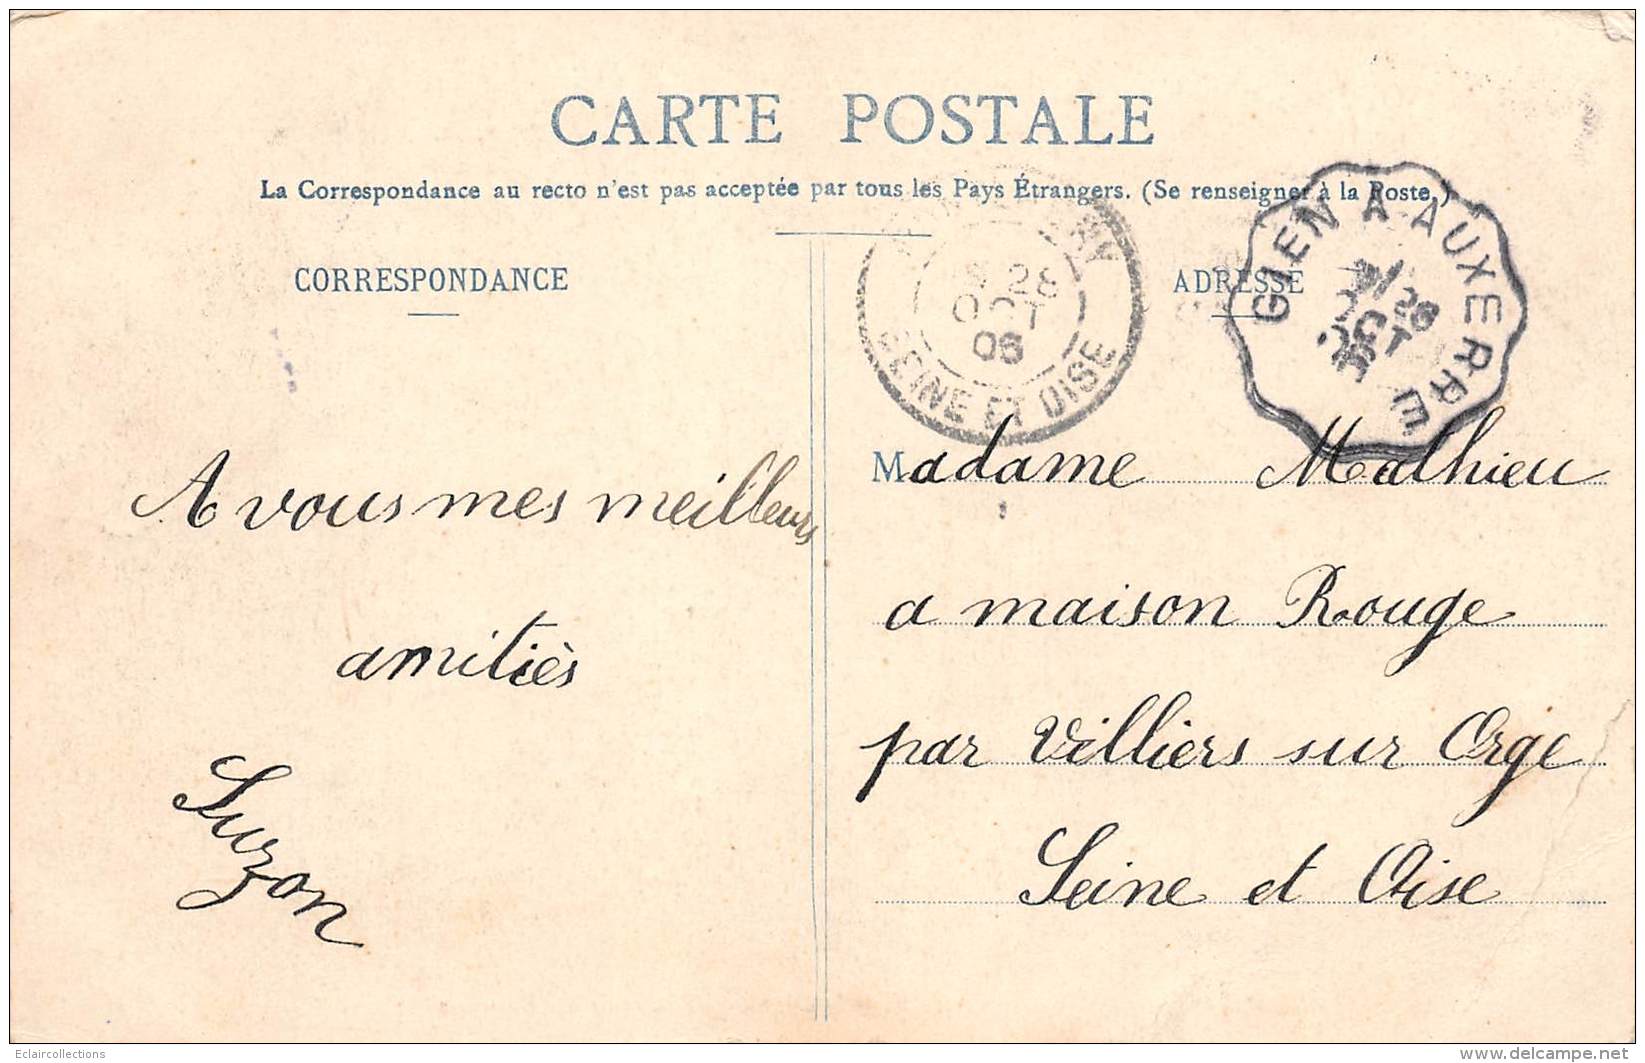 CARTE POSTALE
La Correspondance au recto n'est pas acceptée par tous les Pays Étrangers. (Se renseigner à la Poste.)
CORRESPONDANCE
ADRESSE
28
OCT
06
SEINE ET OISE
GIEN A AUXERRE
26
OCT
A vous mes meilleurs
amitiès
Suzon
Madame Mathieu
a maison Rouge
par Villiers sur Orge
Seine et Oise
Eclaircollections
delcampe.net